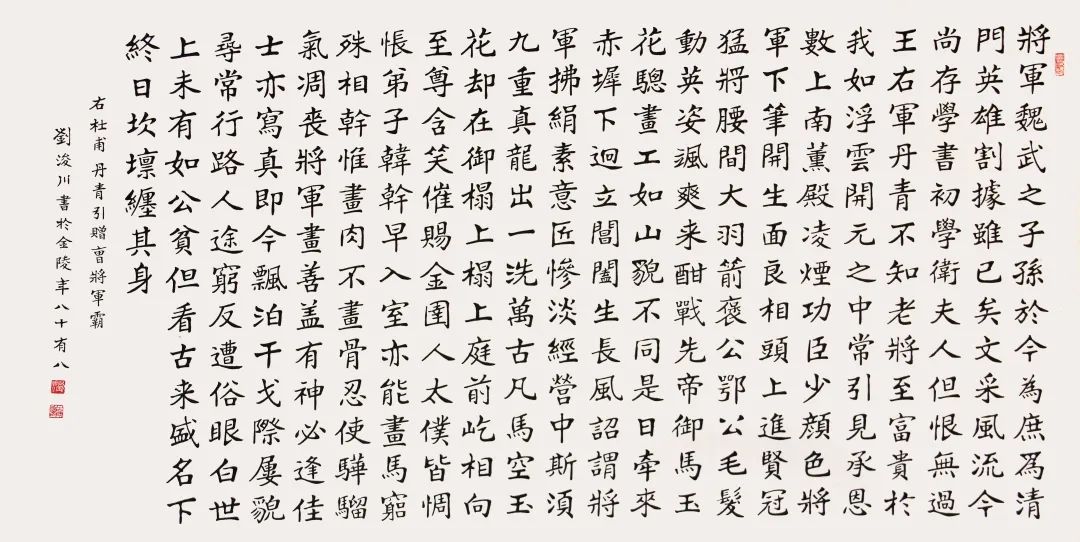 將軍魏武之子孫於今為庶爲清
門英雄割據雖已矣文采風流今
尚存學書初學衛夫人但恨無過
王右軍丹青不知老將至富貴於
我如浮雲開元之中常引見承恩
數上南薰殿凌煙功臣少顏色將
軍下筆開生面良相頭上進賢冠
猛將腰間大羽箭褒公鄂公毛髮
動英姿颯爽来酣戰先帝御馬玉
花驄畫工如山貌不同是日牽來
赤墀下迥立閶闔生長風詔謂將
軍拂絹素意匠慘淡經營中斯須
九重真龍出一洗萬古凡馬空玉
花却在御榻上榻上庭前屹相向
至尊含笑催賜金圉人太僕皆惆
悵弟子韓幹早入室亦能畫馬窮
殊相幹惟畫肉不畫骨忍使驊騮
氣凋喪將軍畫善盖有神必逢佳
士亦寫真即今飄泊干戈際屢貌
尋常行路人途窮反遭俗眼白世
上未有如公貧但看古来盛名下
終日坎壈纏其身
右杜甫丹青引贈曹將軍霸
劉浚川書於金陵年八十有八